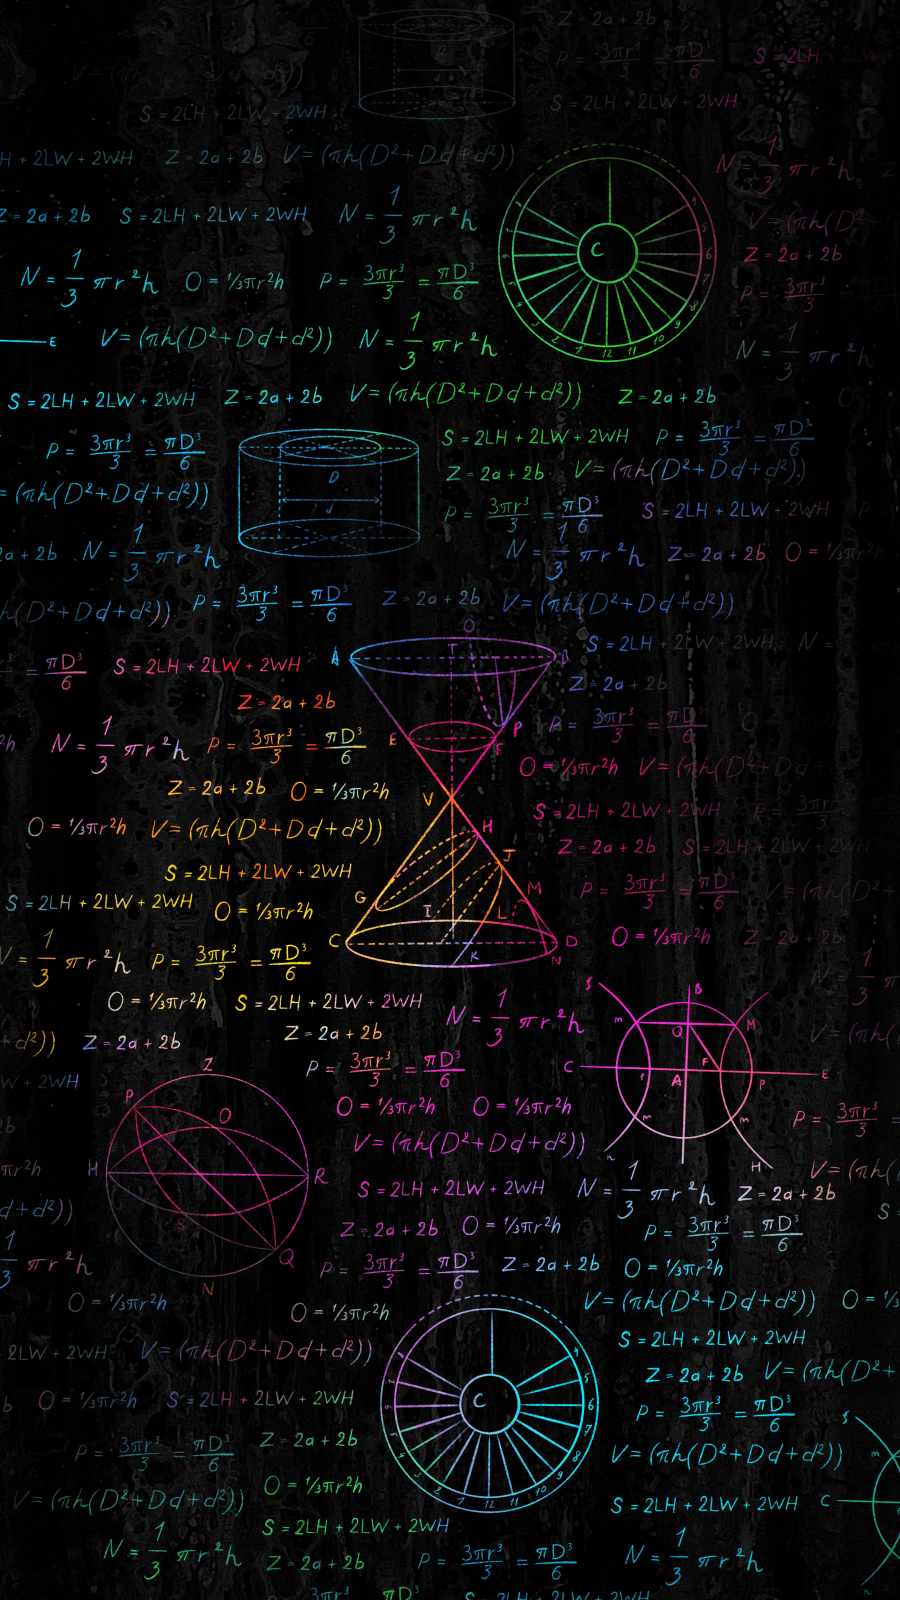 Z = 2a + 2b
P = 3πr³/3 = πD³/6 S = 2LH
S = 2LH + 2LW + 2WH S = 2LH + 2LW + 2WH
H + 2LW + 2WH Z = 2a + 2b V = (πh(D² + Dd + d²))
N = 1/3 πr²h
Z = 2a + 2b S = 2LH + 2LW + 2WH N = 1/3 πr²h
C
Z = 2a + 2b
N = 1/3 πr²h O = ⅓πr²h P = 3πr³/3 = πD³/6
P = 3πr³/3
E V = (πh(D² + Dd + d²)) N = 1/3 πr²h
12 11 10 9
N = 1/3 πr²h
S = 2LH + 2LW + 2WH Z = 2a + 2b V = (πh(D² + Dd + d²)) Z = 2a + 2b
P = 3πr³/3 = πD³/6 S = 2LH + 2LW + 2WH P = 3πr³/3 = πD³/6
Z = 2a + 2b V = (πh(D² + Dd + d²))
D
= (πh(D² + Dd + d²))
d
P = 3πr³/3 = πD³/6 S = 2LH + 2LW + 2WH
2a + 2b N = 1/3 πr²h N = 1/3 πr²h Z = 2a + 2b O = ⅓πr²h
h(D² + Dd + d²)) P = 3πr³/3 = πD³/6 Z = 2a + 2b V = (πh(D² + Dd + d²))
O
S = 2LH + 2LW + 2WH N =
A T B
= πD³/6 S = 2LH + 2LW + 2WH
Z = 2a + 2b
Z = 2a + 2b
P P = 3πr³/3 = πD³/6
N = 1/3 πr²h P = 3πr³/3 = πD³/6 E F
O = ⅓πr²h V = (πh(D² + Dd
Z = 2a + 2b O = ⅓πr²h V
S = 2LH + 2LW + 2WH P = 3πr³/3
O = ⅓πr²h V = (πh(D² + Dd + d²)) H
Z = 2a + 2b S = 2LH + 2LW + 2WH
J
S = 2LH + 2LW + 2WH
M P = 3πr³/3 = πD³/6 V = (πh(D² +
S = 2LH + 2LW + 2WH O = ⅓πr²h G I L
C D O = ⅓πr²h Z = 2a + 2b
V = 1/3 πr²h P = 3πr³/3 = πD³/6 K N
N = 1/3 πr²h
S B
O = ⅓πr²h S = 2LH + 2LW + 2WH N = 1/3 πr²h m Q M
+ d²)) Z = 2a + 2b Z = 2a + 2b
V = (πh(
P = 3πr³/3 = πD³/6 C F E
W + 2WH Z A P
P O O = ⅓πr²h O = ⅓πr²h m m
P = 3πr³/3 =
V = (πh(D² + Dd + d²))
H R H V = (πh(
πr²h S = 2LH + 2LW + 2WH N = 1/3 πr²h Z = 2a + 2b
+ d²)) Z = 2a + 2b O = ⅓πr²h P = 3πr³/3 = πD³/6 S =
1/3 πr²h Q P = 3πr³/3 = πD³/6 Z = 2a + 2b O = ⅓πr²h
N
O = ⅓πr²h O = ⅓πr²h V = (πh(D² + Dd + d²)) O = ⅓
2LW + 2WH V = (πh(D² + Dd + d²)) S = 2LH + 2LW + 2WH
Z = 2a + 2b V = (πh(D² +
b O = ⅓πr²h S = 2LH + 2LW + 2WH C
P = 3πr³/3 = πD³/6 S
P = 3πr³/3 = πD³/6 Z = 2a + 2b V = (πh(D² + Dd + d²)) m
O = ⅓πr²h
V = (πh(D² + Dd + d²)) 12 11 10 9 S = 2LH + 2LW + 2WH C
S = 2LH + 2LW + 2WH
N = 1/3 πr²h Z = 2a + 2b P = 3πr³/3 = πD³/6 N = 1/3 πr²h
3πr³ πD³ S = 2LH + 2LW + 2WH